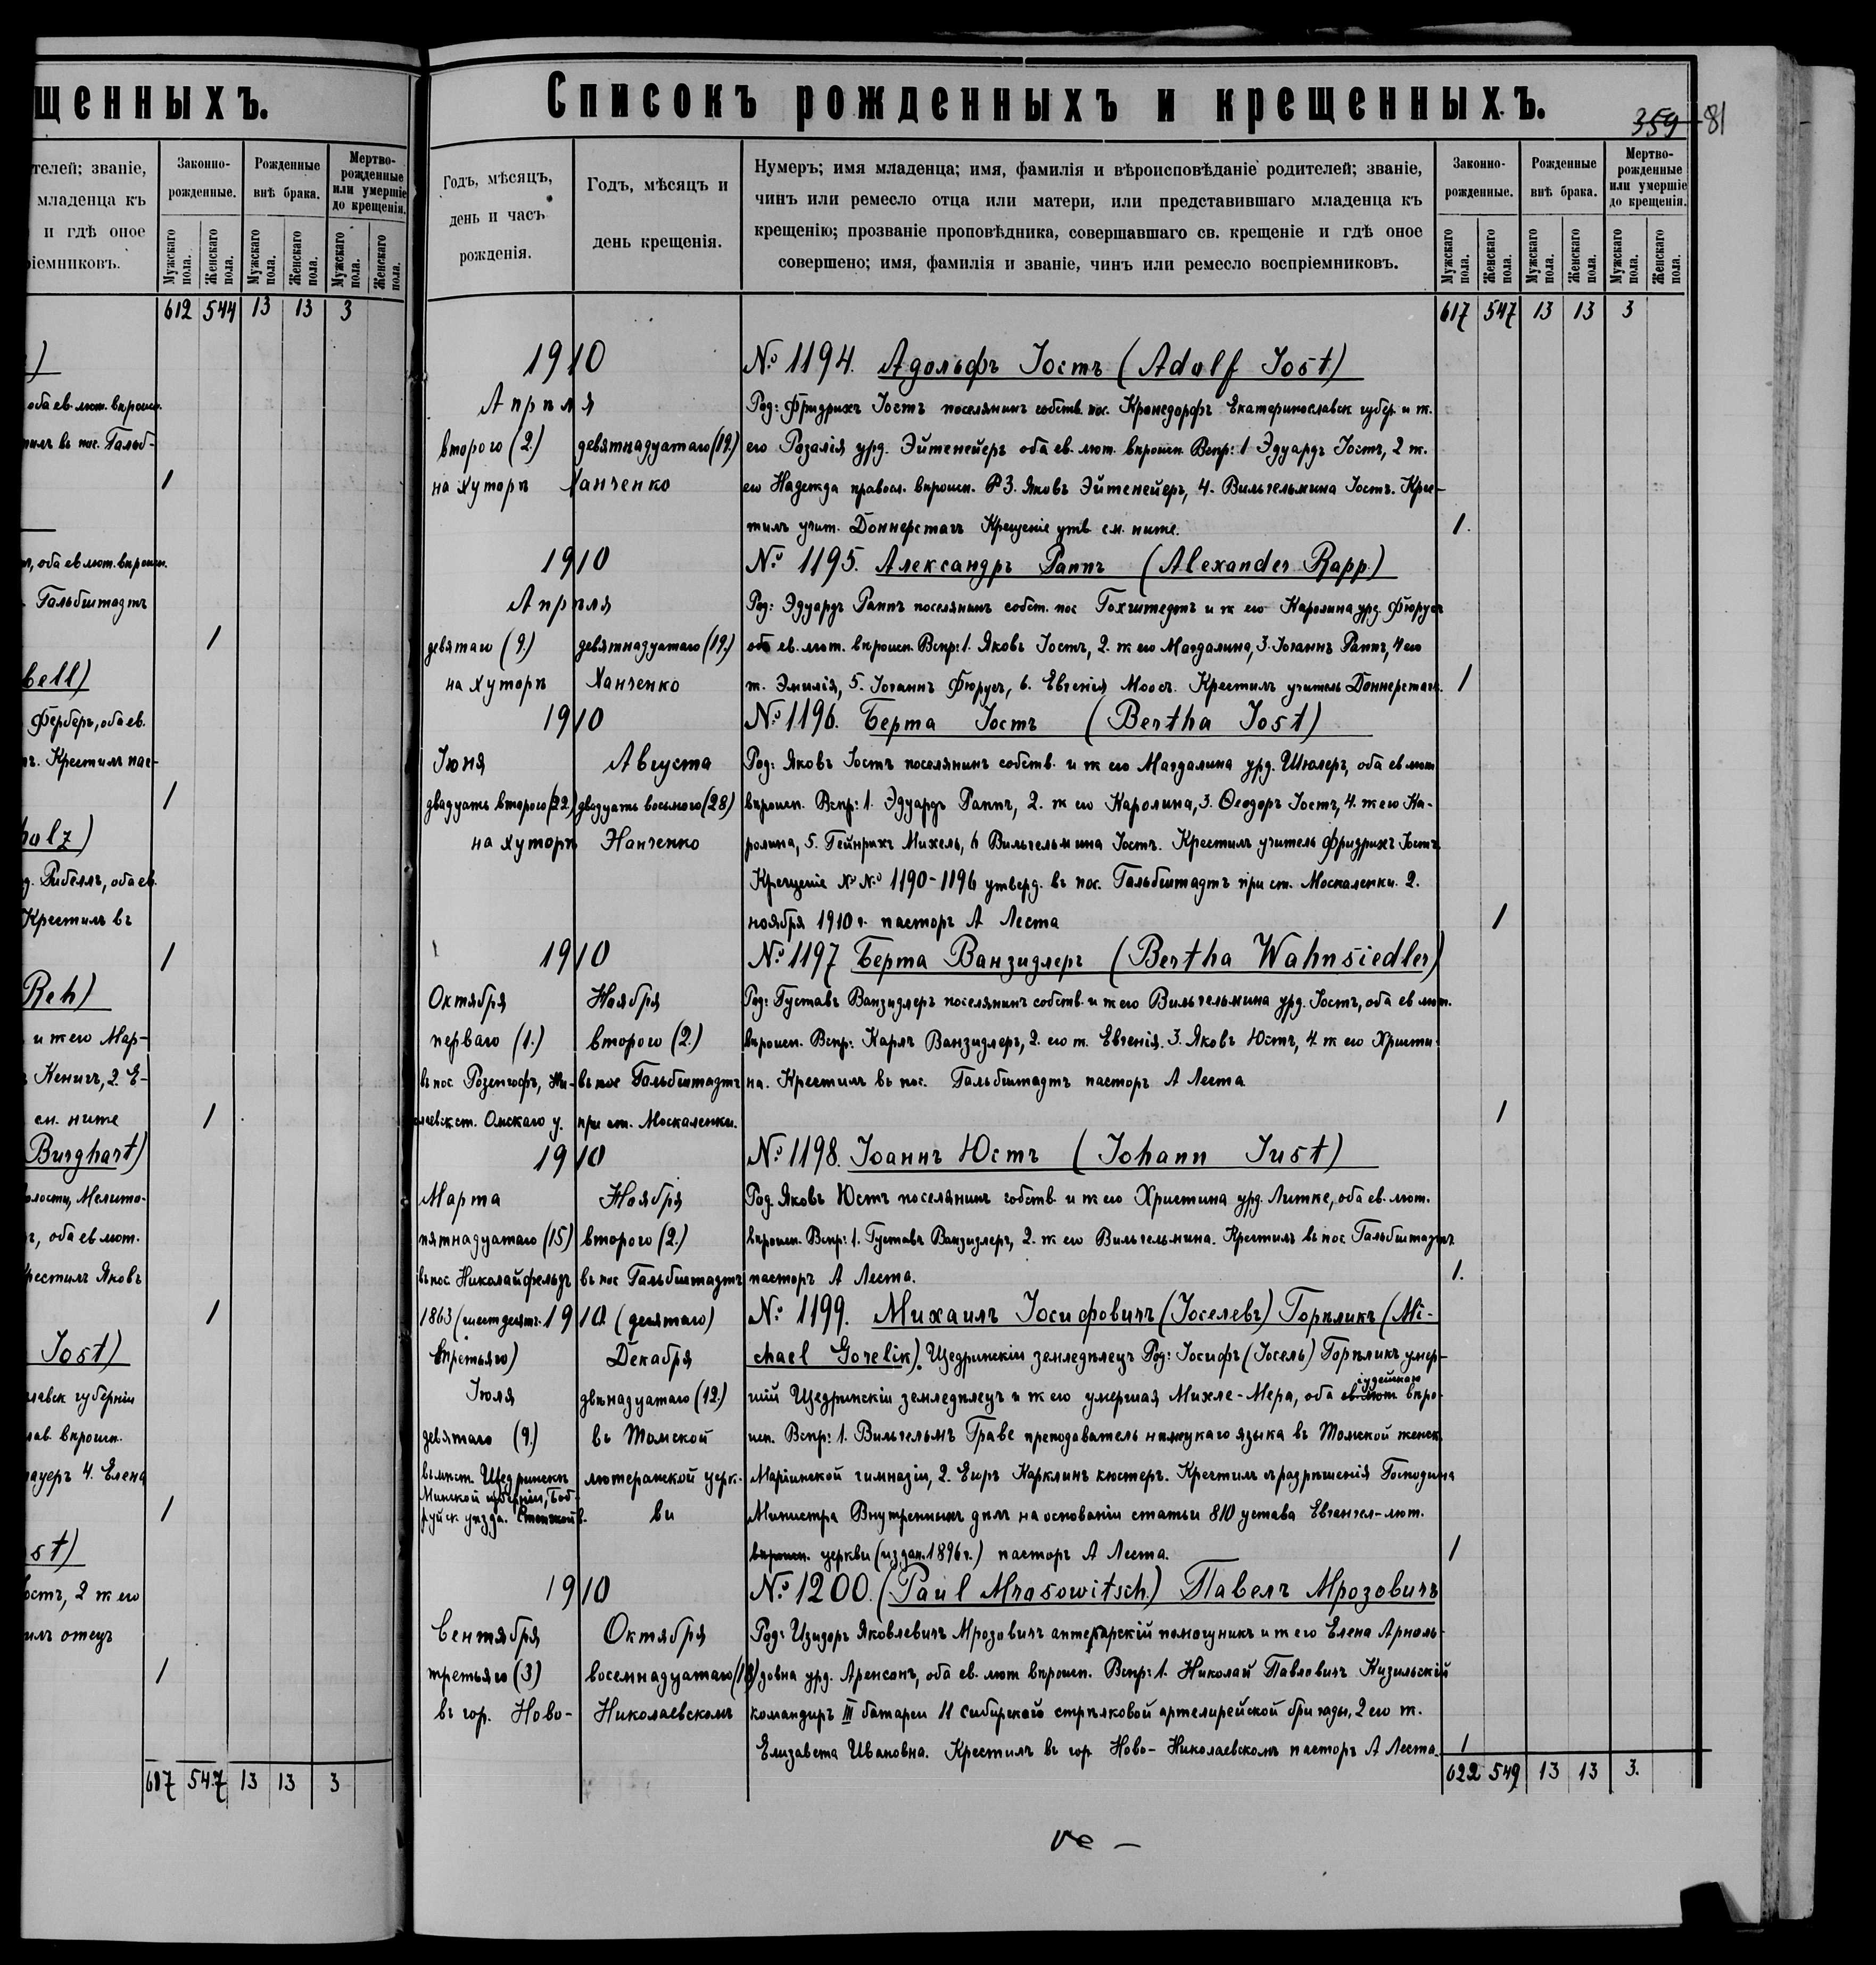 щенныхъ.
телей; званіе,
младенца къ
и гдѣ оное
ріемниковъ.
Законно-
рожденные.
Рожденные
внѣ брака.
Мертво-
рожденные
или умершіе
до крещенія.
Мужскаго пола.
Женскаго пола.
Мужскаго пола.
Женскаго пола.
Мужскаго пола.
Женскаго пола.
612 544 13 13 3
)
оба ев. лют. вѣроисп.
тилъ въ пос. Гальб-
1
оба ев лют. вѣроисп.
Гальбштадтъ
1
bell)
Ферберъ, оба ев.
Крестилъ пас-
1
holz)
Рибелль, оба ев.
Крестилъ въ
1
Reh)
и ж его Мар-
Кенигъ, 2. Е-
см. ниже
1
Burghart)
волости, Мелито-
оба ев лют.
крестилъ Яковъ
1
Jost)
славск губерніи
лав. вѣроисп.
ауеръ 4. Елена
1
st)
Іостъ, 2 ж его
илъ отецъ
1
617 547 13 13 3
Списокъ рожденныхъ и крещенныхъ.
359 81
Годъ, мѣсяцъ,
день и часъ
рожденія.
Годъ, мѣсяцъ и
день крещенія.
Нумеръ; имя младенца; имя, фамилія и вѣроисповѣданіе родителей; званіе,
чинъ или ремесло отца или матери, или представившаго младенца къ
крещенію; прозваніе проповѣдника, совершавшаго св. крещеніе и гдѣ оное
совершено; имя, фамилія и званіе, чинъ или ремесло воспріемниковъ.
Законно-
рожденные.
Рожденные
внѣ брака.
Мертво-
рожденные
или умершіе
до крещенія.
Мужскаго пола.
Женскаго пола.
Мужскаго пола.
Женскаго пола.
Мужскаго пола.
Женскаго пола.
617 547 13 13 3
1910 № 1194. Адольфъ Іостъ (Adolf Jost)
Апрѣля Род: Фридрихъ Іостъ поселянинъ собств. пос. Кронсдорфъ Екатеринославск губер. и ж.
второго (2.) девятнадцатаго (19.) его Розалія урд. Эйтенейеръ оба ев. лют. вѣроисп. Вспр: 1 Эдуардъ Іостъ, 2 ж.
на Хуторѣ Ханченко его Надежда правосл. вѣроисп. 3. Яковъ Эйтенейеръ, 4. Вильгельмина Іостъ. Крес-
тилъ учит. Доннерстагъ Крещеніе утв см. ниже. 1.
1910 № 1195. Александръ Раппъ (Alexander Rapp)
Апрѣля Род: Эдуардъ Раппъ поселянинъ собст. пос Гохштедтъ и ж его Каролина урд. Фюрусъ
девятаго (9.) девятнадцатаго (19.) оба ев. лют. вѣроисп. Вспр: 1. Яковъ Іостъ, 2. ж его Магдалина, 3. Іоганнъ Раппъ, 4 его
на Хуторѣ Ханченко ж. Эмилія, 5. Іоганнъ Фюрусъ, 6. Евгенія Моосъ. Крестилъ учитель Доннерстагъ. 1
1910 № 1196. Берта Іостъ (Bertha Jost)
Іюня Августа Род: Яковъ Іостъ поселянинъ собств. и ж его Магдалина урд. Шюлеръ, оба ев лют
двадцать второго (22.) двадцать восьмого (28) вѣроисп. Вспр: 1. Эдуардъ Раппъ, 2. ж его Каролина, 3. Ѳеодоръ Іостъ, 4. ж его Ка-
на хуторѣ Ханченко ролина, 5. Гейнрихъ Михель, 6 Вильгельмина Іостъ. Крестилъ учитель Фридрихъ Іостъ.
Крещеніе №№ 1190-1196 утверд. въ пос. Гальбштадтъ при ст. Москаленки. 2.
ноября 1910 г. пасторъ А Леста 1
1910 № 1197 Берта Ванзидлеръ (Bertha Wahnsiedler)
Октября Ноября Род: Густавъ Ванзидлеръ поселянинъ собств. и ж его Вильгельмина урд. Іостъ, оба ев лют.
перваго (1.) второго (2.) вѣроисп. Вспр: Карлъ Ванзидлеръ, 2. его ж. Евгенія. 3. Яковъ Юстъ, 4. ж его Христи-
въ пос. Розенгофъ, Ни- въ пос Гальбштадтъ на. Крестилъ въ пос. Гальбштадтъ пасторъ А Леста
лаевск. ст. Омскаго у. при ст. Москаленки. 1
1910 № 1198. Іоаннъ Юстъ (Johann Just)
Марта Ноября Род. Яковъ Юстъ поселянинъ собств. и ж его Христина урд. Литке, оба ев. лют.
пятнадцатаго (15) второго (2.) вѣроисп. Вспр: 1. Густавъ Ванзидлеръ, 2. ж его Вильгельмина. Крестилъ въ пос Гальбштадтъ
въ пос. Николайфельдъ въ пос Гальбштадтъ пасторъ А Леста. 1.
1863 (шестдесят. 1910. (десятаго) № 1199. Михаилъ Іосифовичъ (Іоселевъ) Горѣликъ (Mi-
третьяго) Декабря chael Gorelik). Щедринскій земледѣлецъ Род: Іосифъ (Іосель) Горѣликъ умер-
Іюля двѣнадцатаго (12.) шій Щедринскій земледѣлецъ и ж его умершая Михле-Мера, оба ев. лют іудейскаго вѣро-
девятаго (9.) въ Томской исп. Вспр: 1. Вильгельмъ Граве преподаватель нѣмецкаго языка въ Томской женск.
въ мѣст. Щедринскѣ лютеранской церк- Маріинской гимназіи, 2. Егоръ Карклинъ кюстеръ. Крестилъ съ разрѣшенія Господина
Минской губерніи, Боб-
руйск уѣзда. ви Министра Внутреннихъ дѣлъ на основаніи статьи 810 устава Евангел-лют.
вѣроисп. церкви (издан. 1896 г.) пасторъ А Леста. 1
1910 № 1200. (Paul Mrosowitsch.) Павелъ Мрозовичъ
Сентября Октября Род: Изидоръ Яковлевичъ Мрозовичъ аптекарскій помощникъ и ж его Елена Арноль-
третьяго (3) восемнадцатаго (18) довна урд. Аренсонъ, оба ев. лют вѣроисп. Вспр: 1. Николай Павловичъ Кизильскій
въ гор. Ново- Николаевскомъ командиръ III батареи 11 сибирскаго стрѣлковой артелирейской бригады, 2 его ж.
Елизавета Ивановна. Крестилъ въ гор. Ново-Николаевскомъ пасторъ А Леста. 1
622 549 13 13 3.